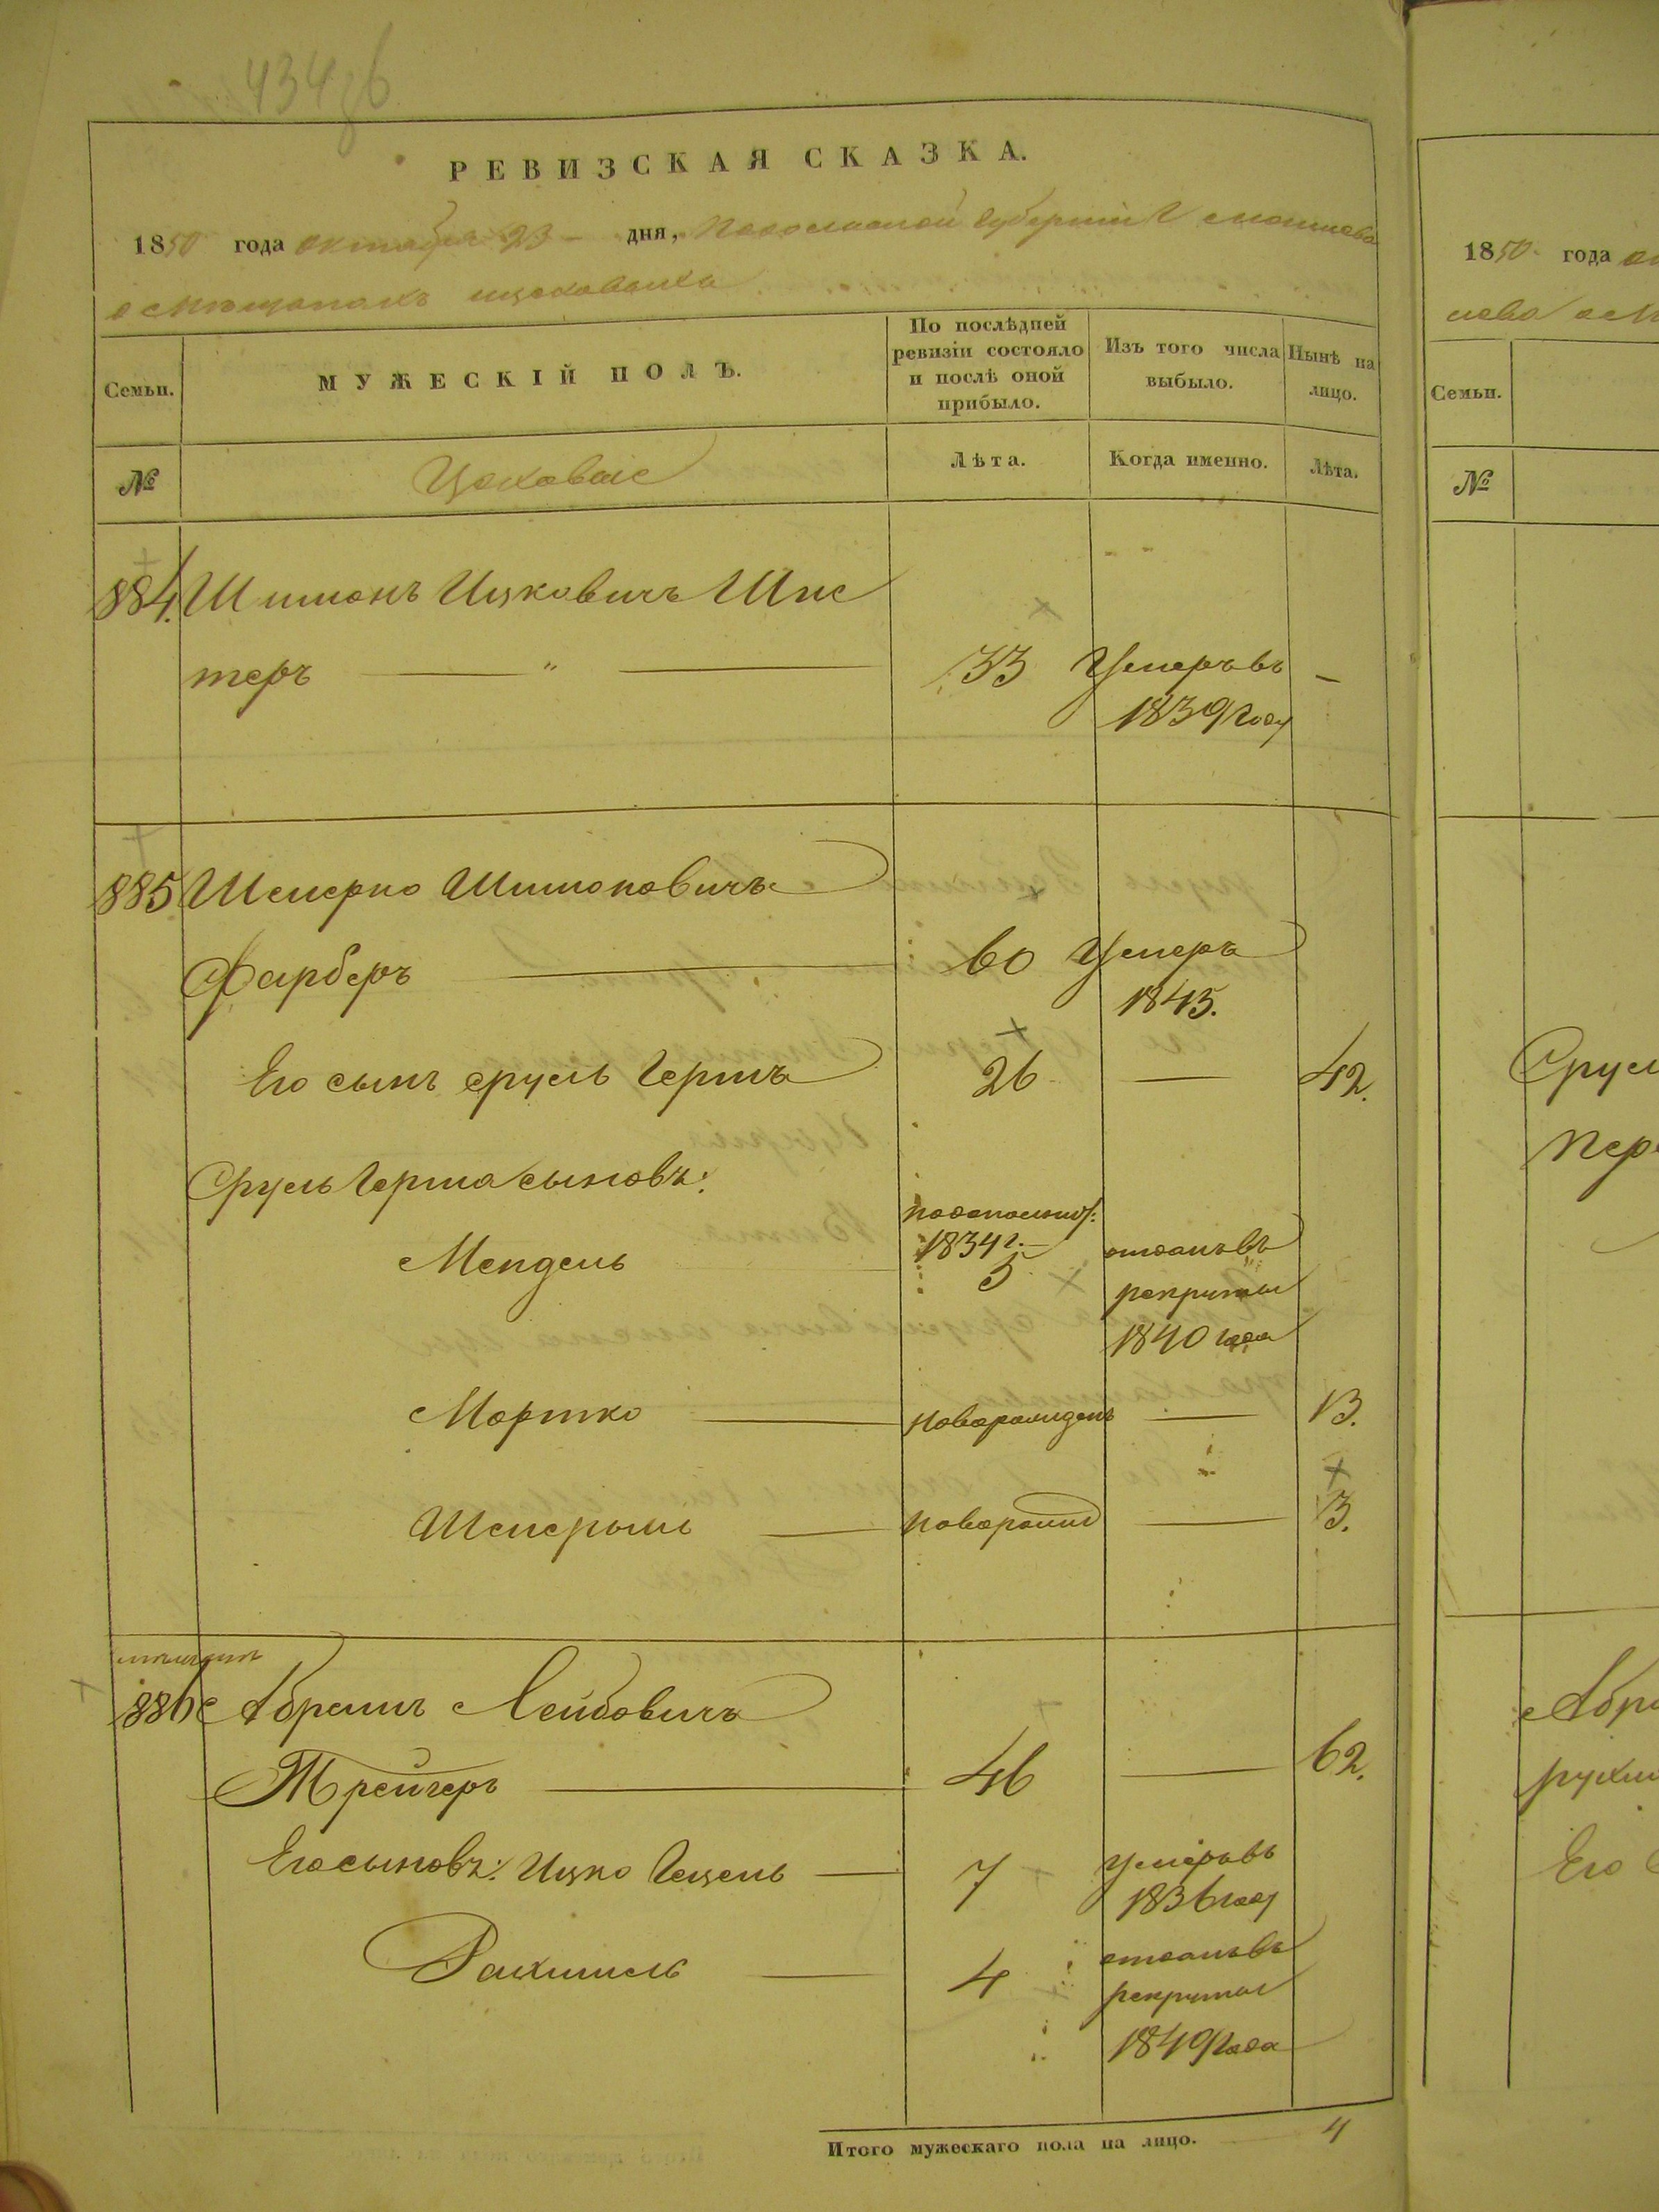 434
РЕВИЗСКАЯ СКАЗКА.
1850 года октября 23 дня, Подольской Губернии Г Могилева
о мещанахъ цеховыхъ
Семьи.
МУЖЕСКІЙ ПОЛЪ.
По послѣдней ревизіи состояло и послѣ оной прибыло.
Изъ того числа выбыло.
Нынѣ на лицо.
№
Цеховые
Лѣта.
Когда именно.
Лѣта.
884. Шимонъ Ицковичъ Шпс
теръ — " — 33 Умеръ въ —
1839 году
885 Шмерко Шимоновичъ
Фарберъ — 60 Умеръ
1845.
Его сынъ Сруль Гершъ 26 — 42.
Сруль Герша сыновъ:
Мендель
1834 г.
5
отданъ въ
рекруты
1840 года
Мортко — новорожденъ — 13.
Шмерыль — новорожд — 3.
886 Абрамъ Лейбовичъ
Трейгеръ — 46 — 62.
Его сыновъ: Ицко Гецель — 7 умеръ въ
1836 году
Рахмиель — 4 отданъ въ
рекруты
1849 года
Итого мужескаго пола на лицо. 4
1850 года
Семьи.
№
Сруль
Его